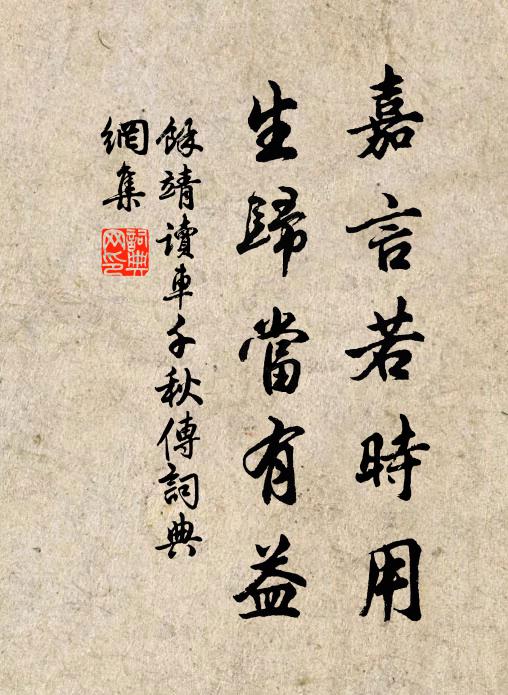 嘉言若時用
生歸當有益
餘靖讀車千秋傳詞典
網集
詞典网印